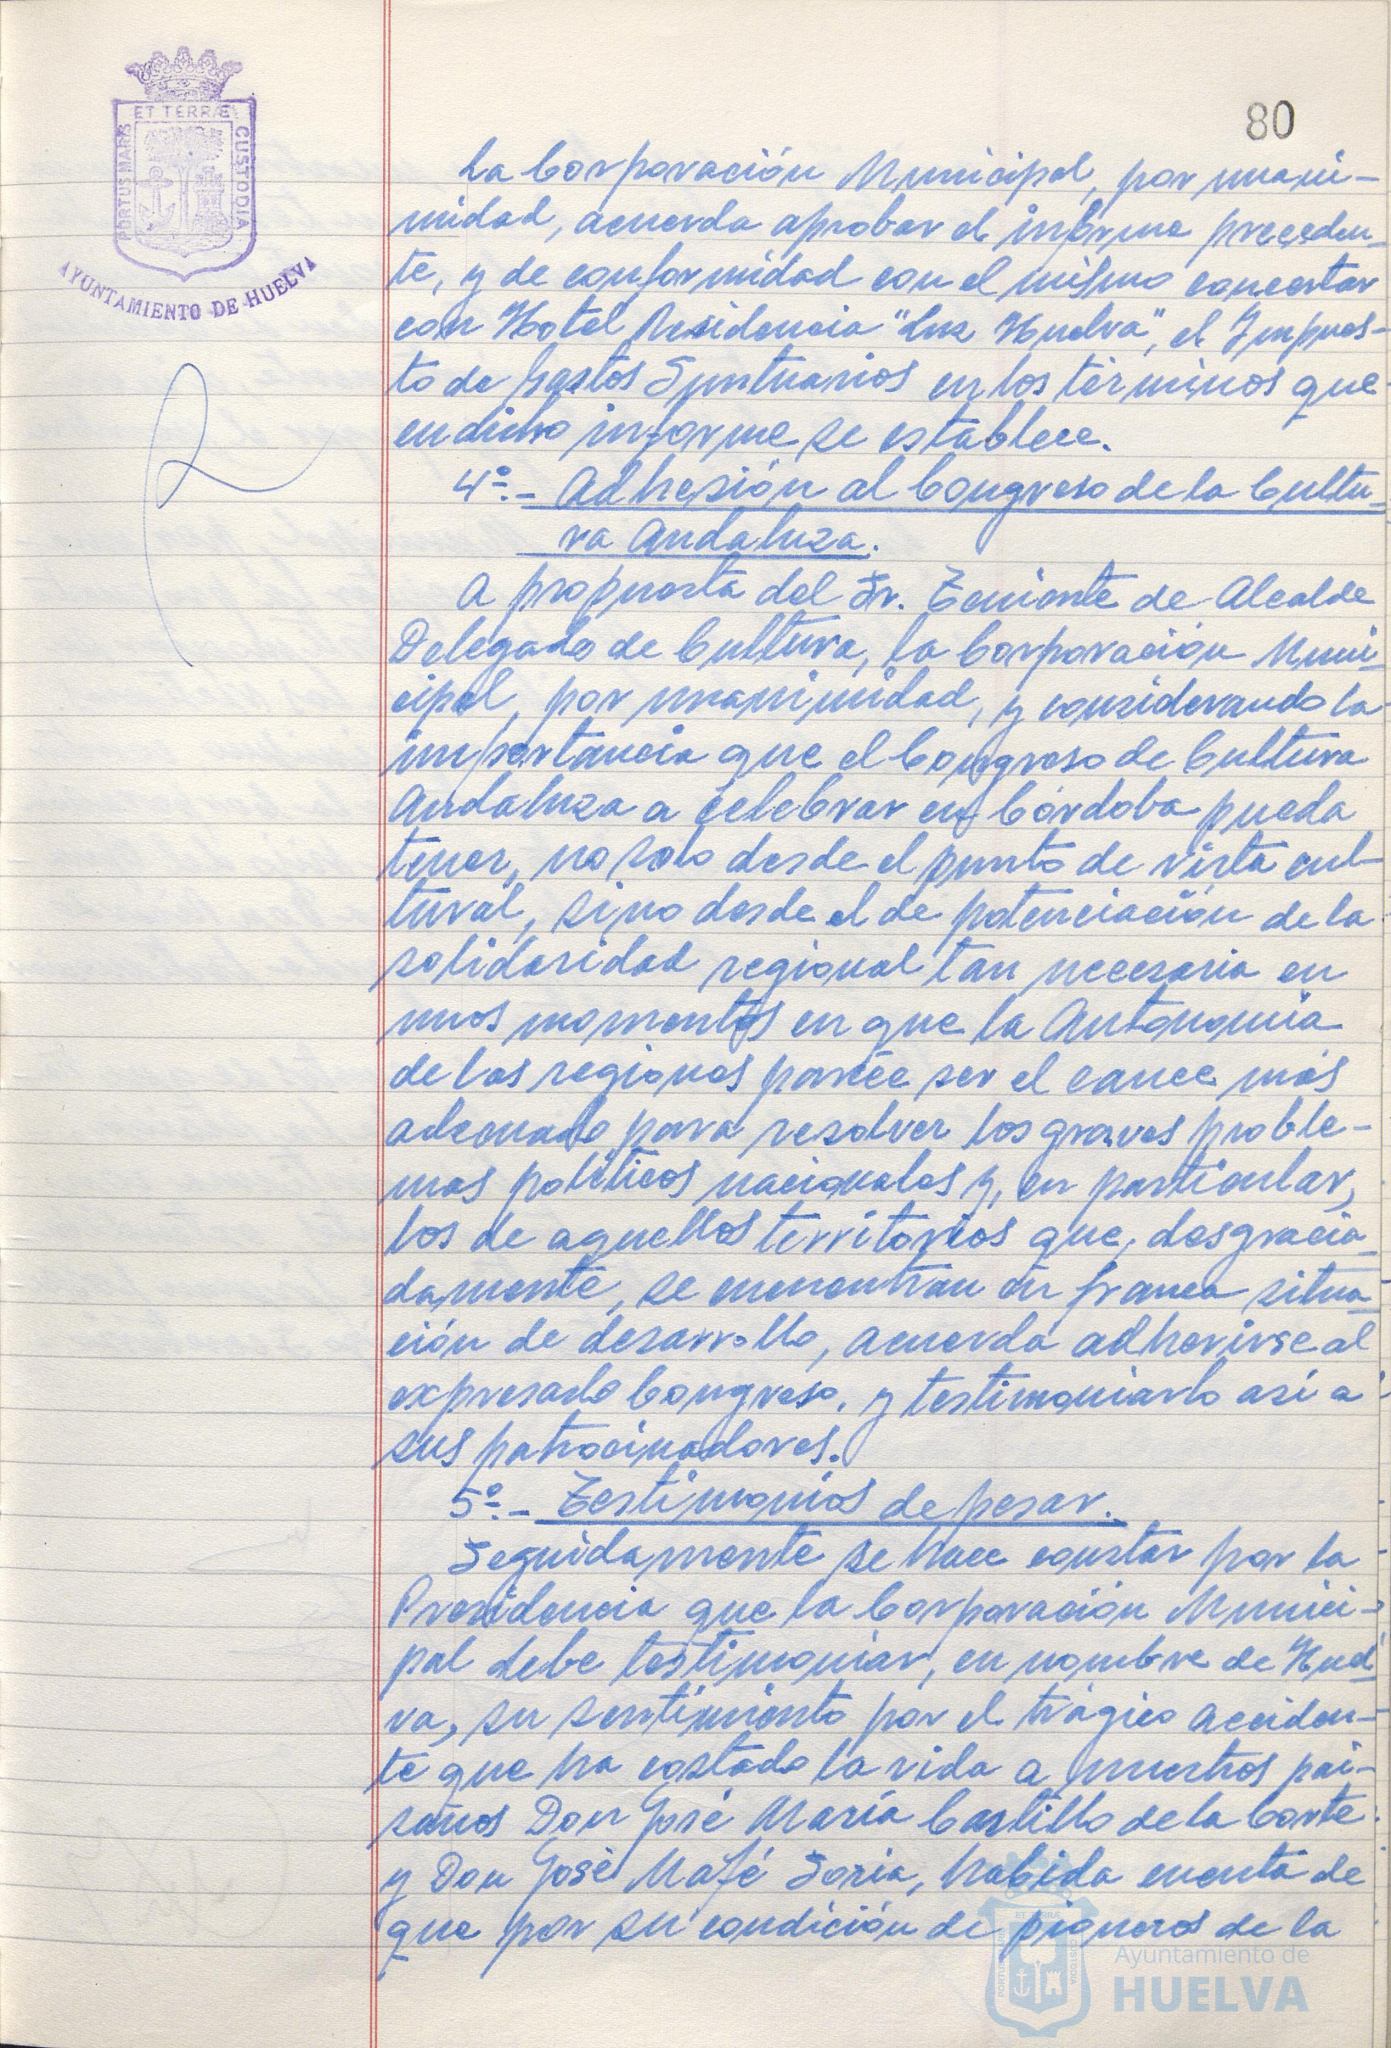 80
ET TERRÆ
PORTUS MARIS
CUSTODIA
AYUNTAMIENTO DE HUELVA
La Corporación Municipal, por unani-
midad, acuerda aprobar el informe preceden-
te, y de conformidad con el mismo concertar
con Hotel Residencia "Luz Huelva", el Impues-
to de Gastos Suntuarios en los términos que
en dicho informe se establece.
4º.- Adhesión al Congreso de la Cultu-
ra Andaluza.
A propuesta del Sr. Teniente de Alcalde
Delegado de Cultura, la Corporación Muni-
cipal, por unanimidad, y considerando la
importancia que el Congreso de Cultura
Andaluza a celebrar en Córdoba pueda
tener, no solo desde el punto de vista cul-
tural, sino desde el de potenciación de la
solidaridad regional tan necesaria en
unos momentos en que la Autonomía
de las regiones parece ser el cauce más
adecuado para resolver los graves proble-
mas políticos nacionales y, en particular,
los de aquellos territorios que, desgracia-
damente, se encuentran en franca situa-
ción de desarrollo, acuerda adherirse al
expresado Congreso, y testimoniarlo así a
sus patrocinadores.
5º.- Testimonios de pesar.
Seguidamente se hace constar por la
Presidencia que la Corporación Munici-
pal debe testimoniar, en nombre de Huel-
va, su sentimiento por el trágico acciden-
te que ha costado la vida a nuestros pai-
sanos Don José María Castillo de la Corte
y Don José Mafé Soria, habida cuenta de
que por su condición de pioneros de la
Ayuntamiento de
HUELVA